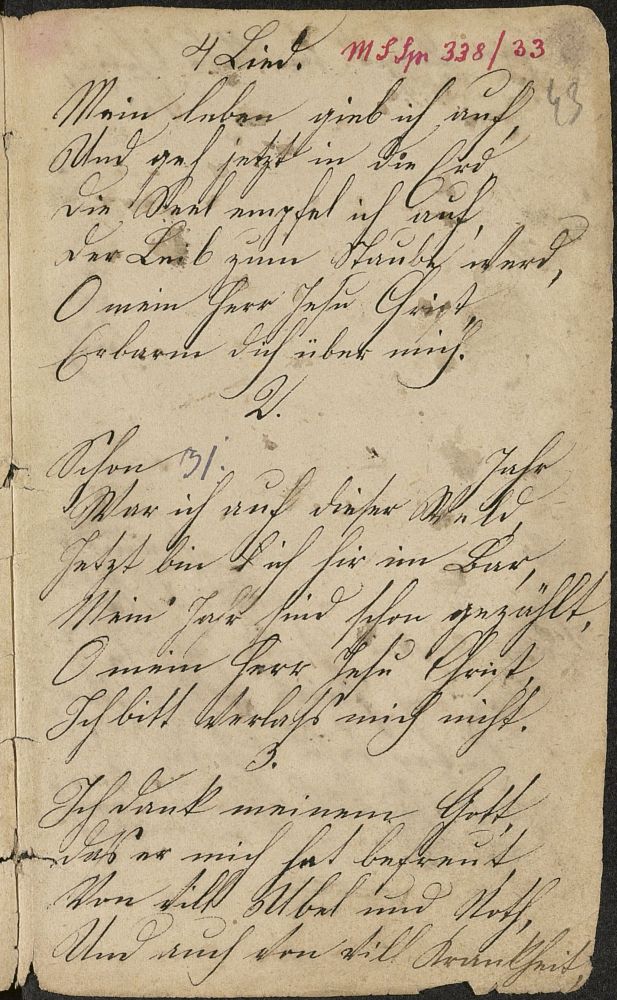 4 Lied. MSSpr 338/33
43
Mein leben gieb ich auf,
Und geh jetzt in die Erd
Die Seel empfel ich auf,
Der Leib zum Staube werd,
O mein Herr Jesu Christ,
Erbarm dich über mich.
2.
Schon 31. Jahr
War ich auf dieser Weld,
Jetzt bin ich hir im Bar,
Mein Jahr sind schon gezählt,
O mein Herr Jesu Christ,
Ich bitt Verlahs mich nicht.
3.
Ich dank meinem Gott,
Das er mich hat befreut
Von vill Übel und Noth,
Und auch von vill Krankheit,